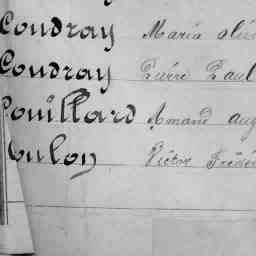 Coudray Maria
Coudray Pierre Paul
Pouillard Amand Aug
Victor Frédér